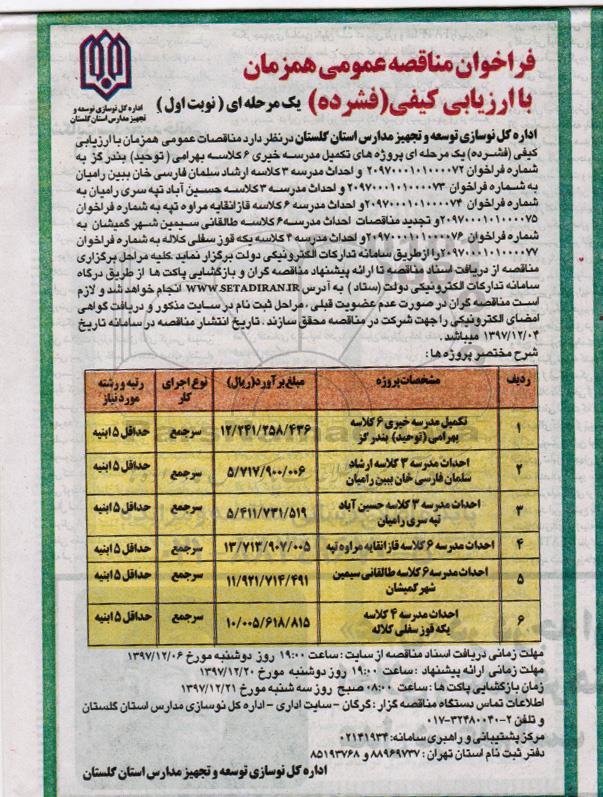 فراخوان مناقصه عمومی همزمان
با ارزیابی کیفی (فشرده) یک مرحله ای ( نوبت اول )
اداره کل نوسازی توسعه و
تجهیز مدارس استان گلستان
اداره کل نوسازی توسعه و تجهیز مدارس استان گلستان در نظر دارد مناقصات عمومی همزمان با ارزیابی
کیفی (فشرده) یک مرحله ای پروژه های تکمیل مدرسه خیری ۶ کلاسه بهرامی ( توحید) بندر گز به
شماره فراخوان ۲۰۹۷۰۰۰۱۰۱۰۰۰۰۷۲ و احداث مدرسه ۳ کلاسه ارشاد سلمان فارسی خان ببین رامیان
به شماره فراخوان ۲۰۹۷۰۰۰۱۰۱۰۰۰۰۷۳ و احداث مدرسه ۳ کلاسه حسین آباد تپه سری رامیان به
شماره فراخوان ۲۰۹۷۰۰۰۱۰۱۰۰۰۰۷۴ و احداث مدرسه ۶ کلاسه قازانقایه مراوه تپه به شماره فراخوان
۲۰۹۷۰۰۰۱۰۱۰۰۰۰۷۵ و تجدید مناقصات احداث مدرسه ۶ کلاسه طالقانی سیمین شهر گمیشان به
شماره فراخوان ۲۰۹۷۰۰۰۱۰۱۰۰۰۰۷۶ و احداث مدرسه ۴ کلاسه یکه قوز سفلی کلاله به شماره فراخوان
۲۰۹۷۰۰۰۱۰۱۰۰۰۰۷۷ را از طریق سامانه تدارکات الکترونیکی دولت برگزار نماید. کلیه مراحل برگزاری
مناقصه از دریافت اسناد مناقصه تا ارائه پیشنهاد مناقصه گران و بازگشایی پاکت ها از طریق درگاه
سامانه تدارکات الکترونیکی دولت (ستاد) به آدرس WWW.SETADIRAN.IR انجام خواهد شد و لازم
است مناقصه گران در صورت عدم عضویت قبلی ، مراحل ثبت نام در سایت مذکور و دریافت گواهی
امضای الکترونیکی را جهت شرکت در مناقصه محقق سازند. تاریخ انتشار مناقصه در سامانه تاریخ
۱۳۹۷/۱۲/۰۴ میباشد.
شرح مختصر پروژه ها :
ردیف مشخصات پروژه مبلغ برآورد (ریال) نوع اجرای کار رتبه و رشته مورد نیاز
۱ تکمیل مدرسه خیری ۶ کلاسه بهرامی (توحید) بندر گز ۱۲/۲۴۱/۲۵۸/۴۳۶ سرجمع حداقل ۵ ابنیه
۲ احداث مدرسه ۳ کلاسه ارشاد سلمان فارسی خان ببین رامیان ۵/۷۱۷/۹۰۰/۰۰۶ سرجمع حداقل ۵ ابنیه
۳ احداث مدرسه ۳ کلاسه حسین آباد تپه سری رامیان ۵/۴۱۱/۷۳۱/۵۱۹ سرجمع حداقل ۵ ابنیه
۴ احداث مدرسه ۶ کلاسه قازانقایه مراوه تپه ۱۳/۷۱۳/۹۰۷/۰۰۵ سرجمع حداقل ۵ ابنیه
۵ احداث مدرسه ۶ کلاسه طالقانی سیمین شهر گمیشان ۱۱/۹۲۱/۷۱۴/۴۹۱ سرجمع حداقل ۵ ابنیه
۶ احداث مدرسه ۴ کلاسه یکه قوز سفلی کلاله ۱۰/۰۰۵/۶۱۸/۸۱۵ سرجمع حداقل ۵ ابنیه
مهلت زمانی دریافت اسناد مناقصه از سایت : ساعت ۱۹:۰۰ روز دوشنبه مورخ ۱۳۹۷/۱۲/۰۶
مهلت زمانی ارائه پیشنهاد : ساعت ۱۹:۰۰ روز دوشنبه مورخ ۱۳۹۷/۱۲/۲۰
زمان بازگشایی پاکت ها : ساعت ۰۸:۰۰ صبح روز سه شنبه مورخ ۱۳۹۷/۱۲/۲۱
اطلاعات تماس دستگاه مناقصه گزار : گرگان - سایت اداری - اداره کل نوسازی مدارس استان گلستان
و تلفن ۲-۳۲۴۸۰۰۴۰-۰۱۷
مرکز پشتیبانی و راهبری سامانه: ۰۲۱۴۱۹۳۴
دفتر ثبت نام استان تهران : ۸۸۹۶۹۷۳۷ و ۸۵۱۹۳۷۶۸
اداره کل نوسازی توسعه و تجهیز مدارس استان گلستان